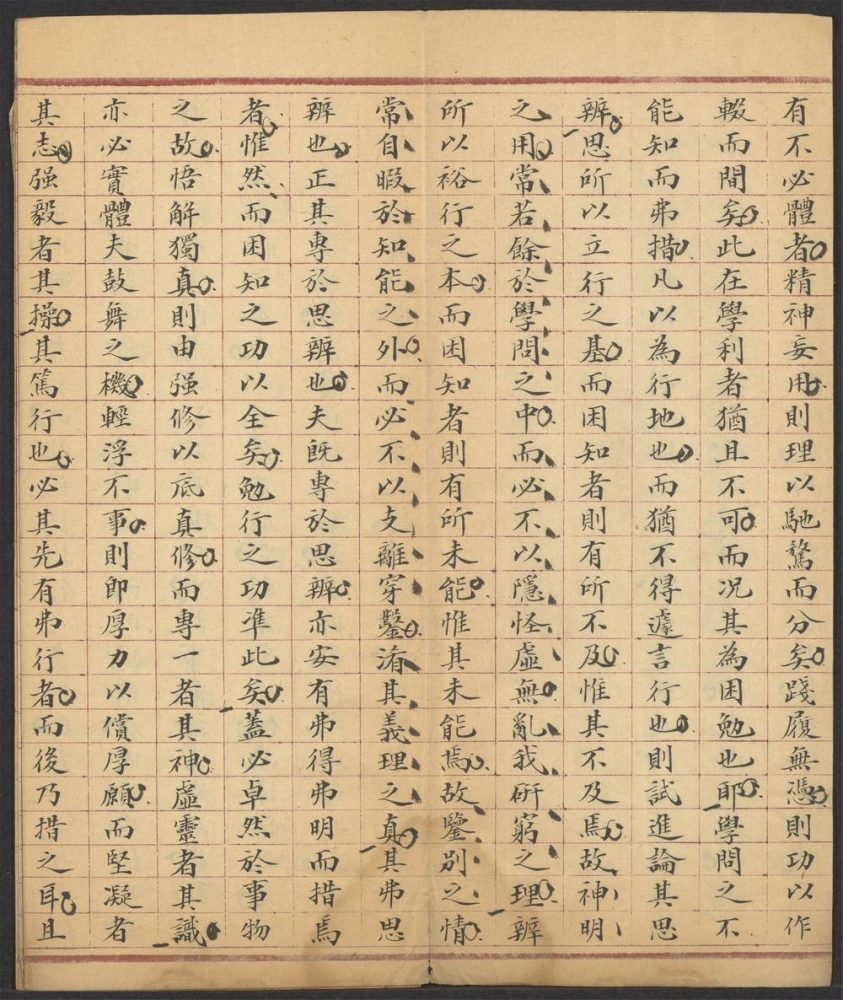 有不必體者精神妄用則理以馳騖而分矣踐履無憑則功以作
輟而間矣此在學利者猶且不可而况其為困勉也耶學問之不
能知而弗措凡以為行地也而猶不得遽言行也則試進論其思
辨思所以立行之基而困知者則有所不及惟其不及焉故神明
之用常若餘於學問之中而必不以隱怪虛無亂我研窮之理辨
所以裕行之本而困知者則有所未能惟其未能焉故鑒別之情
常自暇於知能之外而必不以支離穿鑿淆其義理之真其弗思
辨也正其專於思辨也夫既專於思辨亦安有弗得弗明而措焉
者惟然而困知之功以全矣勉行之功準此矣蓋必卓然於事物
之故悟解獨真則由强修以底真修而專一者其神虛靈者其識
亦必實體夫鼓舞之機輕浮不事則即厚力以償厚願而堅凝者
其志强毅者其操其篤行也必其先有弗行者而後乃措之耳且